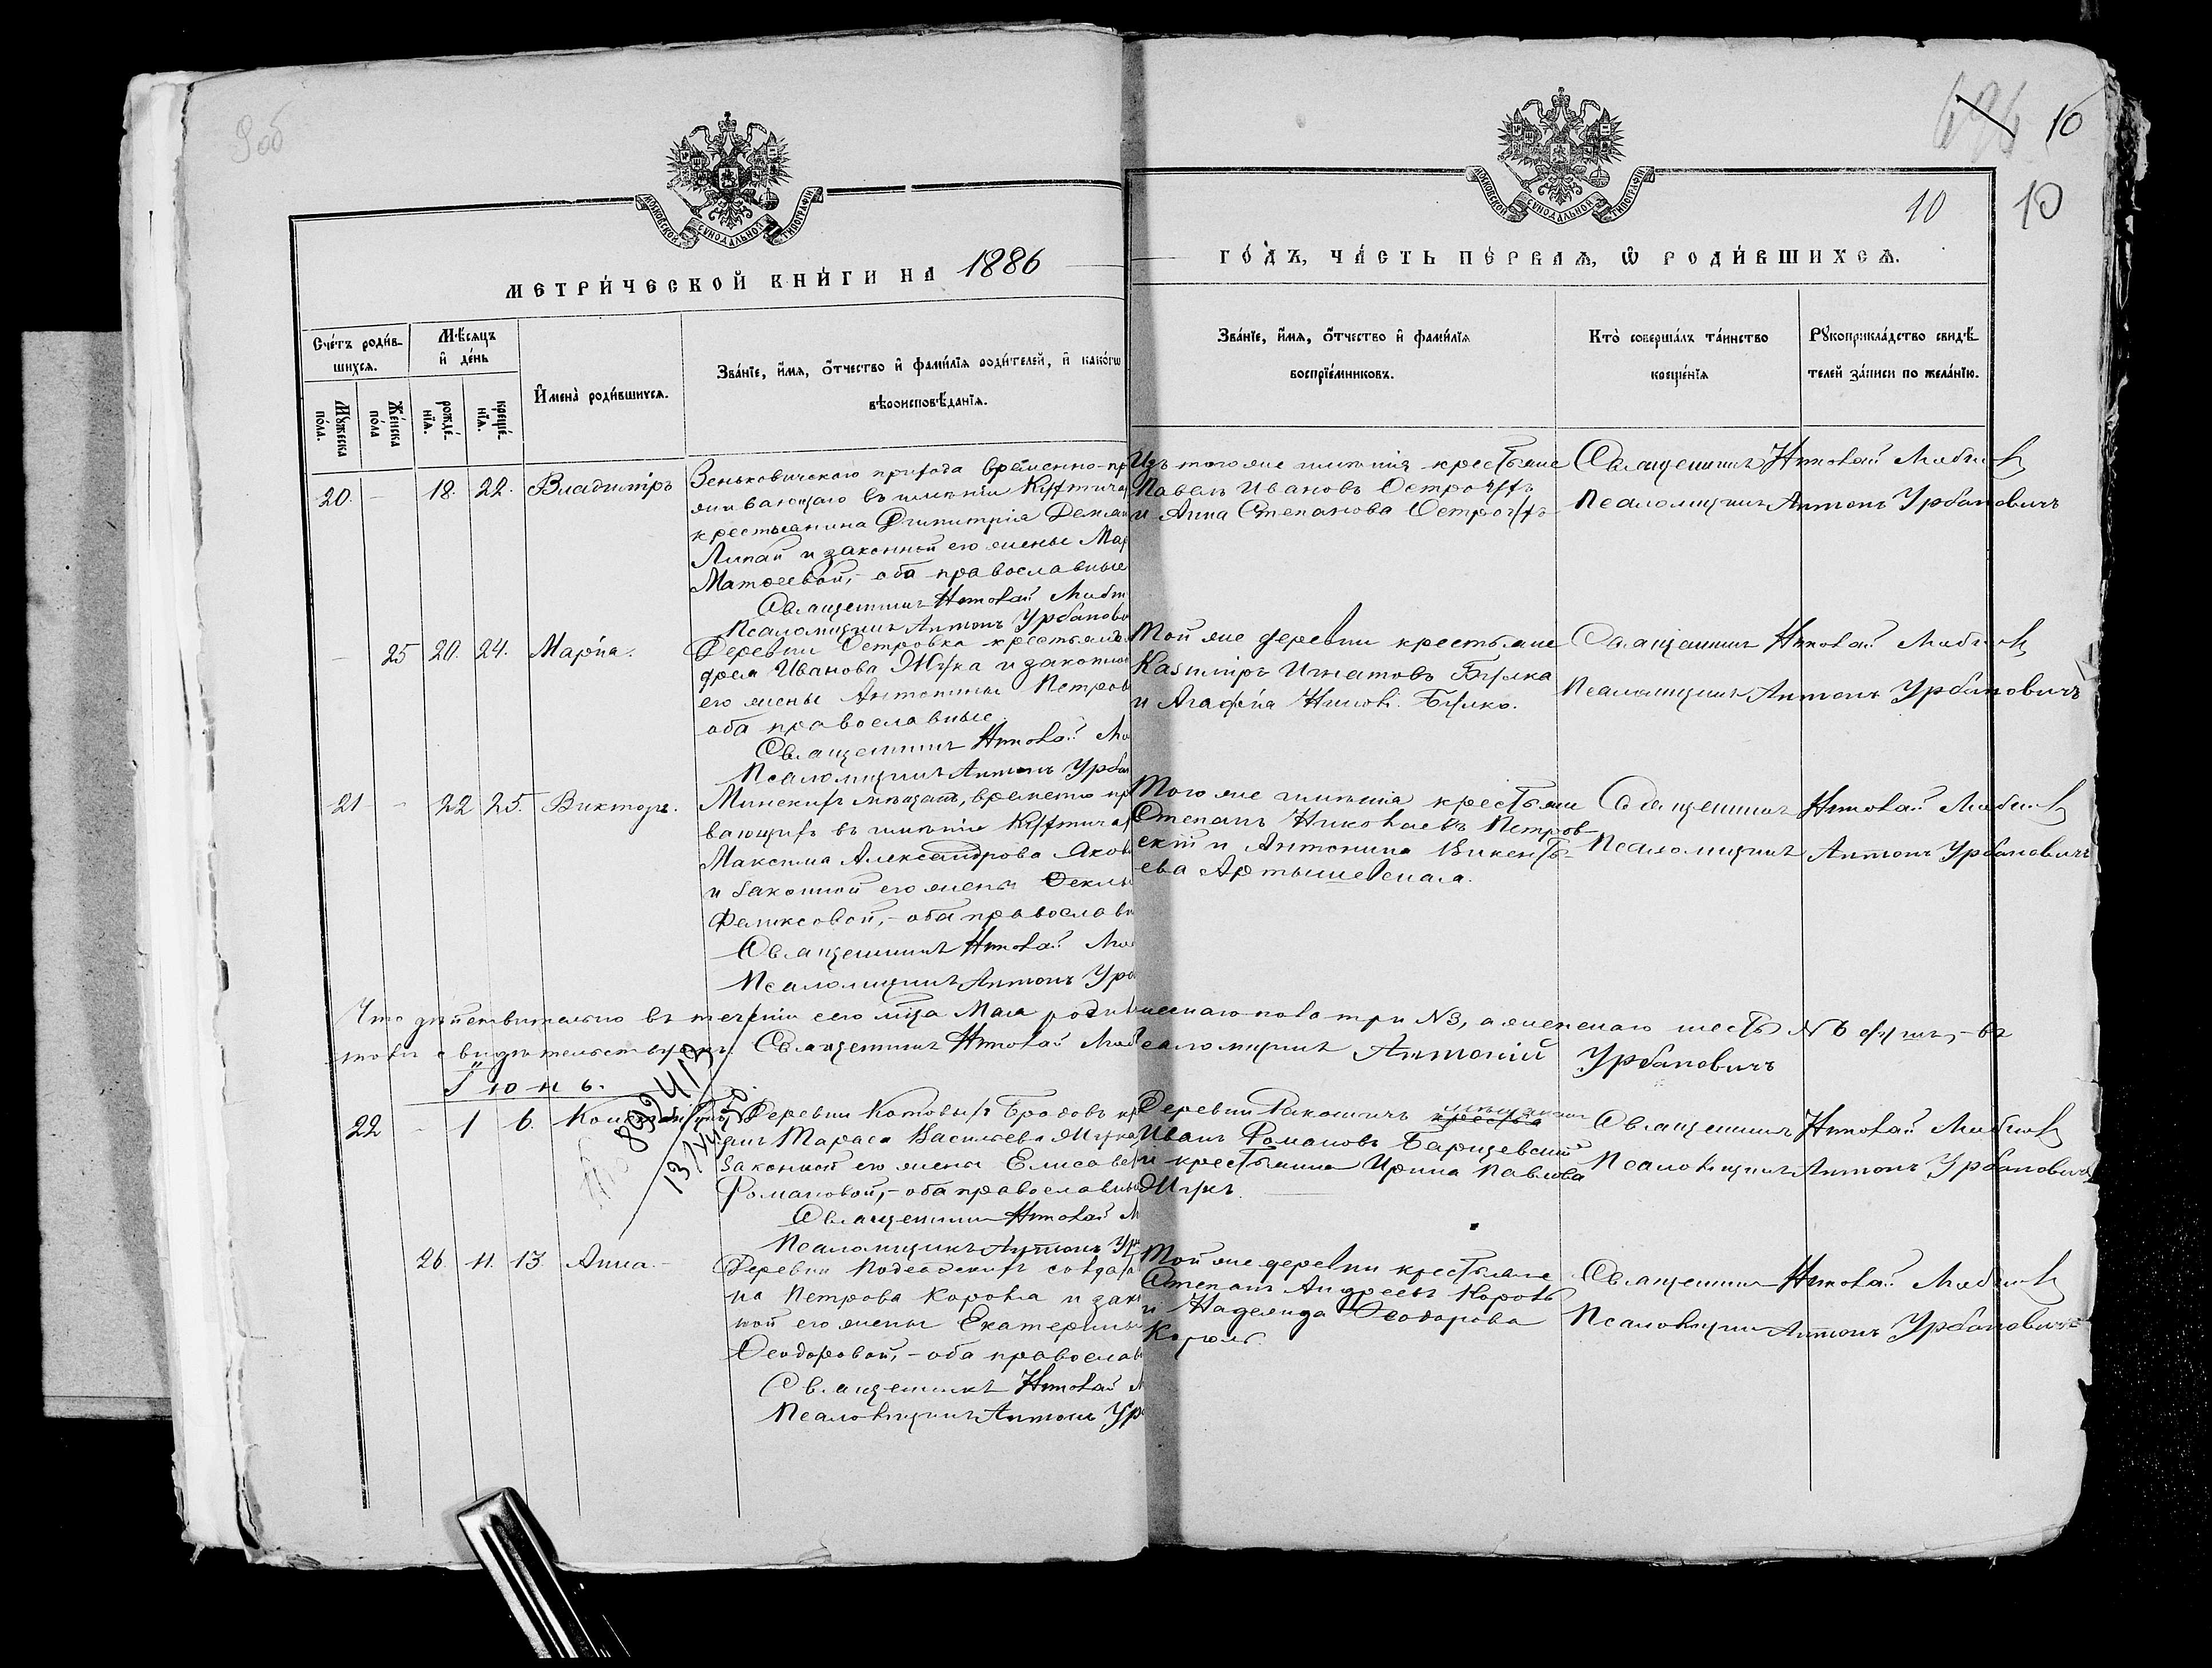 9 об
696 10
10 10
МОСКОВСКОЙ СѴНОДАЛЬНОЙ ТИПОГРАФІИ
МОСКОВСКОЙ СѴНОДАЛЬНОЙ ТИПОГРАФІИ
МЕТРИ́ЧЕСКОЙ КНИ́ГИ НА 1886
ГО́ДЪ, ЧА́СТЬ ПЕ́РВАѦ, Ѡ҆ РОДИ́ВШИХСѦ.
Сче́тъ роди́в-
шихсѧ.
Мꙋ́жеска по́ла.
Же́нска по́ла
Мѣ́сѧцъ
и҆ де́нь
рожде́-
нїѧ.
креще́-
нїѧ.
И҆мена̀ роди́вшихсѧ.
Зва́нїе, и҆́мѧ, ѻ҆́тчество и҆ фами́лїѧ роди́телей, и҆ како́гѡ
вѣроисповѣ́данїѧ.
Зва́нїе, и҆́мѧ, ѻ҆́тчество и҆ фами́лїѧ
воспрїе́мниковъ.
Кто̀ соверша́лъ та́инство
креще́нїѧ
Рꙋкоприкла́дство свидѣ́-
телей за́писи по жела́нїю.
20. - 18. 22. Владиміръ
Зеньковичскаго прихода временно-пр
живающаго въ имѣніи Кухтичах
крестьянина Димитрія Демья
Липай и законной его жены Мар
Матѳеевой,- оба православные
Священникъ Николай
Псаломщикъ Антонъ Урбанови
Изъ того же имѣнія крестьяне
Павелъ Ивановъ Острочухъ
и Анна Степанова Острочухъ
Священникъ Николай
Псаломщикъ Антонъ Урбановичъ
- 25 20. 24. Марія.
Деревни Островка крестьян
дрея Ивanова Жука и законной
его жены Антонины Петров
оба православные.
Священникъ Николай
Псаломщикъ Антонъ Урбан
Той же деревни крестьяне
Казиміръ Игнатовъ Булка
и Агафія Булко.
Священникъ Николай
Псаломщикъ Антонъ Урбановичъ
21 - 22 25. Викторъ.
Минскихъ мѣщанъ, временно пр
вающихъ въ имѣніи Кухтичах
Максима Александрова Яков
и законной его жены Ѳеклы
Феликсовой,- оба православн
Священникъ Николай
Псаломщикъ Антонъ Урб
Того же имѣнія крестьяне
Степанъ Николаевъ Петров-
скій и Антонина Викентъ-
ева Артышевская.
Священникъ Николай
Псаломщикъ Антонъ Урбановичъ
Что дѣйствительно въ теченіи сего мѣсяца Мая родив мескаго пола три №3, а женскаго шесть №6 душъ,- въ
томъ свидѣтельствуемъ. Священникъ Николай саломщикъ Антоній Урбановичъ
Іюнь.
8924/13
22 - 1 6.
Деревни Котовыхъ Бродовъ кр
динъ Тараса Васильева Жука
законной его жены Елисавет
Романовой,- оба православные
Священникъ Николай
Псаломщикъ Антонъ Ур
Деревни Ракошичъ мѣщанинъ
Иванъ Романовъ Барщевскій
и крестьянка Ирина Павлова
Жукъ.
Священникъ Николай
Псаломщикъ Антонъ Урбановичъ
26. 11. 13. Анна.
Деревни солдата
на Петрова Короля и закон
ной его жены Екатерины
Ѳеодоровой,- оба православ
Священникъ Николай
Псаломщикъ Антонъ Ур
Той же деревни крестьяне
Степанъ Андреевъ Король
и Надежда Ѳеодорова
Король.
Священникъ Николай
Псаломщикъ Антонъ Урбановичъ